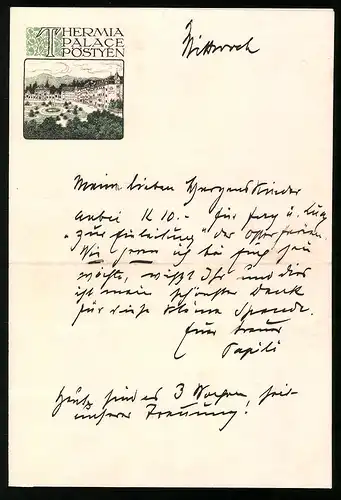 THERMIA
PALACE
PÖSTYÉN
Mittwoch
Meine lieben Herzenskinder
anbei K 10.- für u.
"zur Einleitung" der Osterferien.
Wie gern ich bei Euch sein
möchte, wißt Ihr und dies
ist mein schönster Dank
für diese kleine Spende.
Euer treuer
Papili
Heute sind es 3 Wochen seit
unserer Trennung!